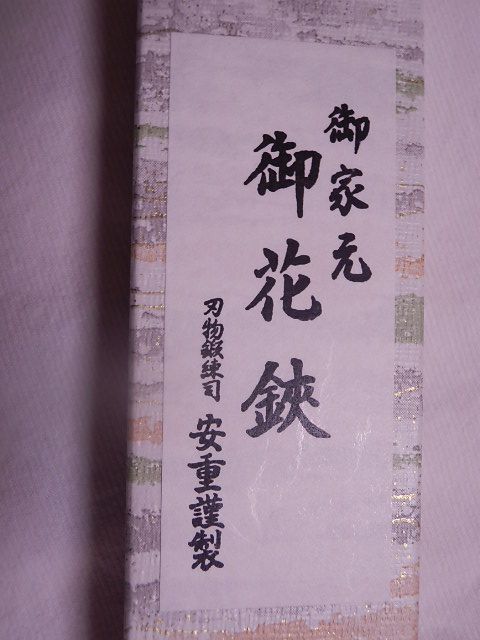 御家元
御花鋏
刃物鍛練司 安重謹製